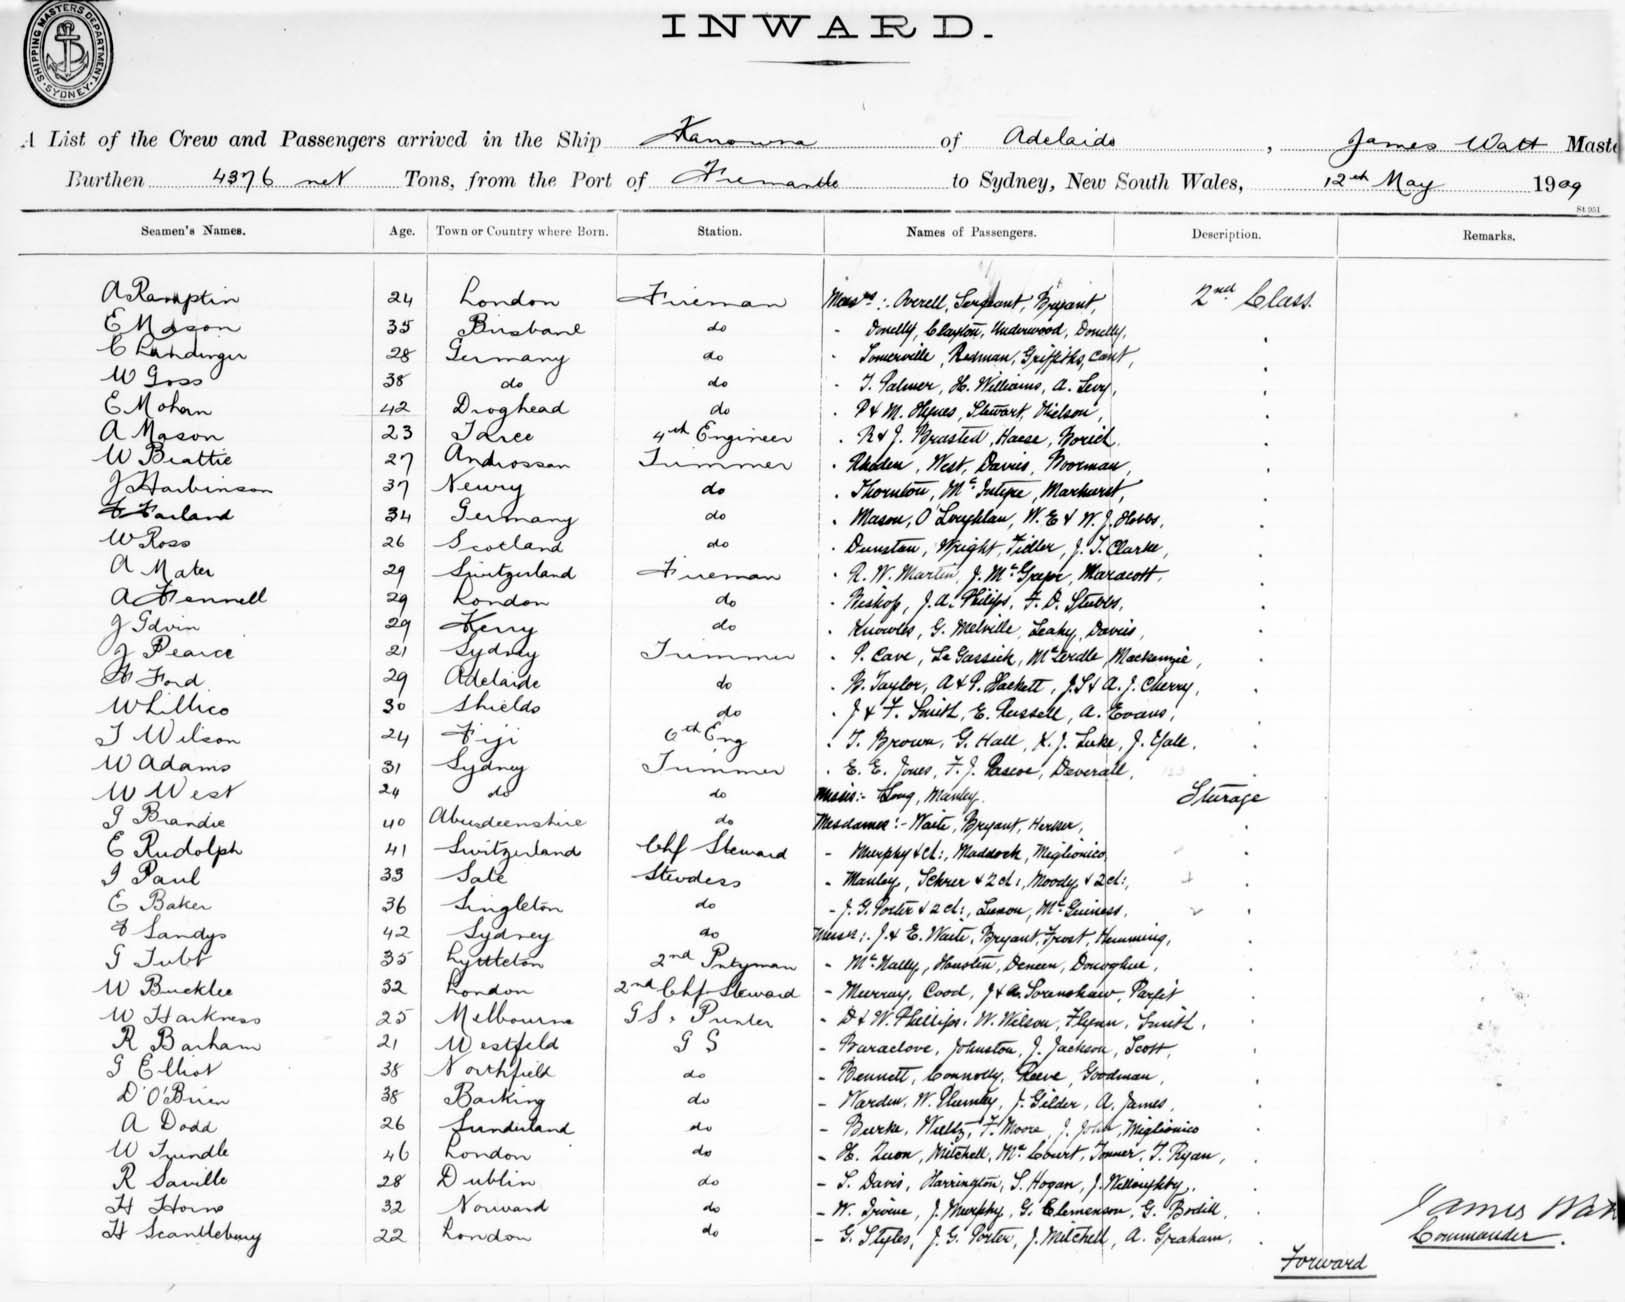 SHIPPING MASTERS DEPARTMENT
SYDNEY
INWARD.
A List of the Crew and Passengers arrived in the Ship Kanowna of Adelaide, James Watt Maste
Burthen 4376 net Tons, from the Port of Fremantle to Sydney, New South Wales, 12th May 1909
St 951
Seamen's Names. Age. Town or Country where Born. Station. Names of Passengers. Description. Remarks.
A Ramptin 24 London Fireman Messrs: Overell, Sergeant, Bryant, 2nd Class.
E Mason 35 Brisbane do - Donelly, Clayton, Underwood, Donelly,
C 28 Germany do - Somerville, Redman, Griffiths, Cant,
W Goss 38 do do - T. Palmer, H. Williams, A. Levy,
E Mohan 42 Droghead do P & M. Hynes, Stewart, Nielson,
A Mason 23 Taree 4th Engineer R & J. Brusted, Haese, Borich
W Beattie 27 Androssan Trimmer Rhoden, West, Davies, Noorman,
J Harbinson 37 Newry do Thornton, McIntyre, Markurst,
F Farland 34 Germany do Mason, O'Loughlan, W. E & W. J. Hobbs,
W Ross 26 Scotland do Dunstan, Wright, Fidler, J. T. Clarke,
A Mater 29 Switzerland Fireman R. W. Martin, J. McGregor, Maracott,
A Fennell 29 London do Bishop, J. A. Philips, F. D. Stubbs,
J Galvin 29 Kerry do Knowles, G. Melville, Leahy, Davis,
J Pearce 21 Sydney Trimmer P. Cave, Le Gassick, McLerdle, Mackenzie,
F Ford 29 Adelaide do W. Taylor, A & P. Hackett, J. S & A. J. Cherry,
W Lillico 30 Shields do J & F. Smith, E. Russell, A. Evans,
T Wilson 24 Fiji 6th Eng T. Brown, G. Hall, K. J. Luke, J. Yall,
W Adams 31 Sydney Trimmer E. E. Jones, F. J. Pascoe, Deverall,
W West 24 do do Misses:- Long, Manley. Sturage
G Brandie 40 Aberdeenshire do Mesdames:- Waite, Bryant, Herser,
E Rudolph 41 Switzerland Chf Steward - Murphy & ch:, Maddock, Miglionico,
I Paul 33 Sale Stewdess - Manley, Schrer & 2 ch:, Moody & 2 ch:,
E Baker 36 Singleton do - J. G. Porter & 2 ch:, Luxon, McGuiness,
F Sandys 42 Sydney do Messrs:. J. & E. Waite, Bryant, Frost, Hemming,
G Tubb 35 Lyttleton 2nd Pntryman - McNally, Houston, Deneen, Donoghue,
W Bucklee 32 London 2nd Chf Steward - Murray, Cood, J & A. Cranshaw, Parfit
W Harkness 25 Melbourne GS. Printer - D & W. Phillips, W. Wilson, Flynn, Smith,
R Barham 21 Westfeld G S - Baraclove, Johnston, J. Jackson, Scott,
G Elliot 38 Northfield do - Bennett, Connolly, Reeve, Goodman,
D O'Brien 38 Barking do - Warden, W. Plumley, J. Gilder, A. James,
A Dodd 26 Sunderland do - Burke, Weltz, F. Moore, J. John, Miglionico
W Trundle 46 London do - H. Luon, Mitchell, McCourt, Tonner, T. Ryan,
R Saville 28 Dublin do - S. Davis, Harrington, S. Hogan, J. Willoughby,
H Horne 32 Norward do - W. Irvine, J. Murphy, G. Clemenson, G. Bodill,
H Scantlebury 22 London do - G. Styles, J. G. Porter, J. Mitchell, A. Graham,
James Watt
Commander.
Forward